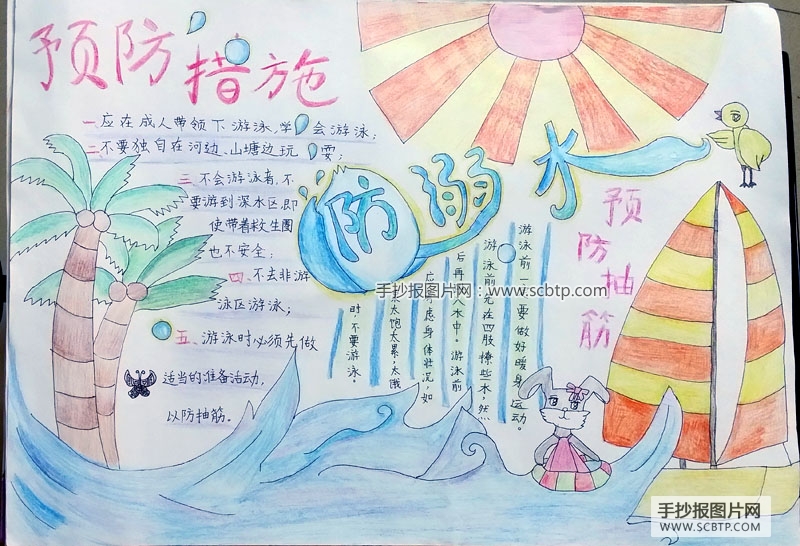 预防措施
一、应在成人带领下游泳,学会游泳;
二、不要独自在河边、山塘边玩耍;
三、不会游泳者,不
要游到深水区,即
使带着救生圈
也不安全;
四、不去非游
泳区游泳;
五、游泳时必须先做
适当的准备活动,
以防抽筋。
防溺水
预防抽筋
游泳前一
要做好暖身运动。
游泳前
先在四肢撩些水,然
后再
入水中。游泳前
应
虑身体状况,如
太饱太累,太饿
时,不要游泳。
手抄报图片网:www.scbtp.com
手抄报图片网
WWW.SCBTP.COM